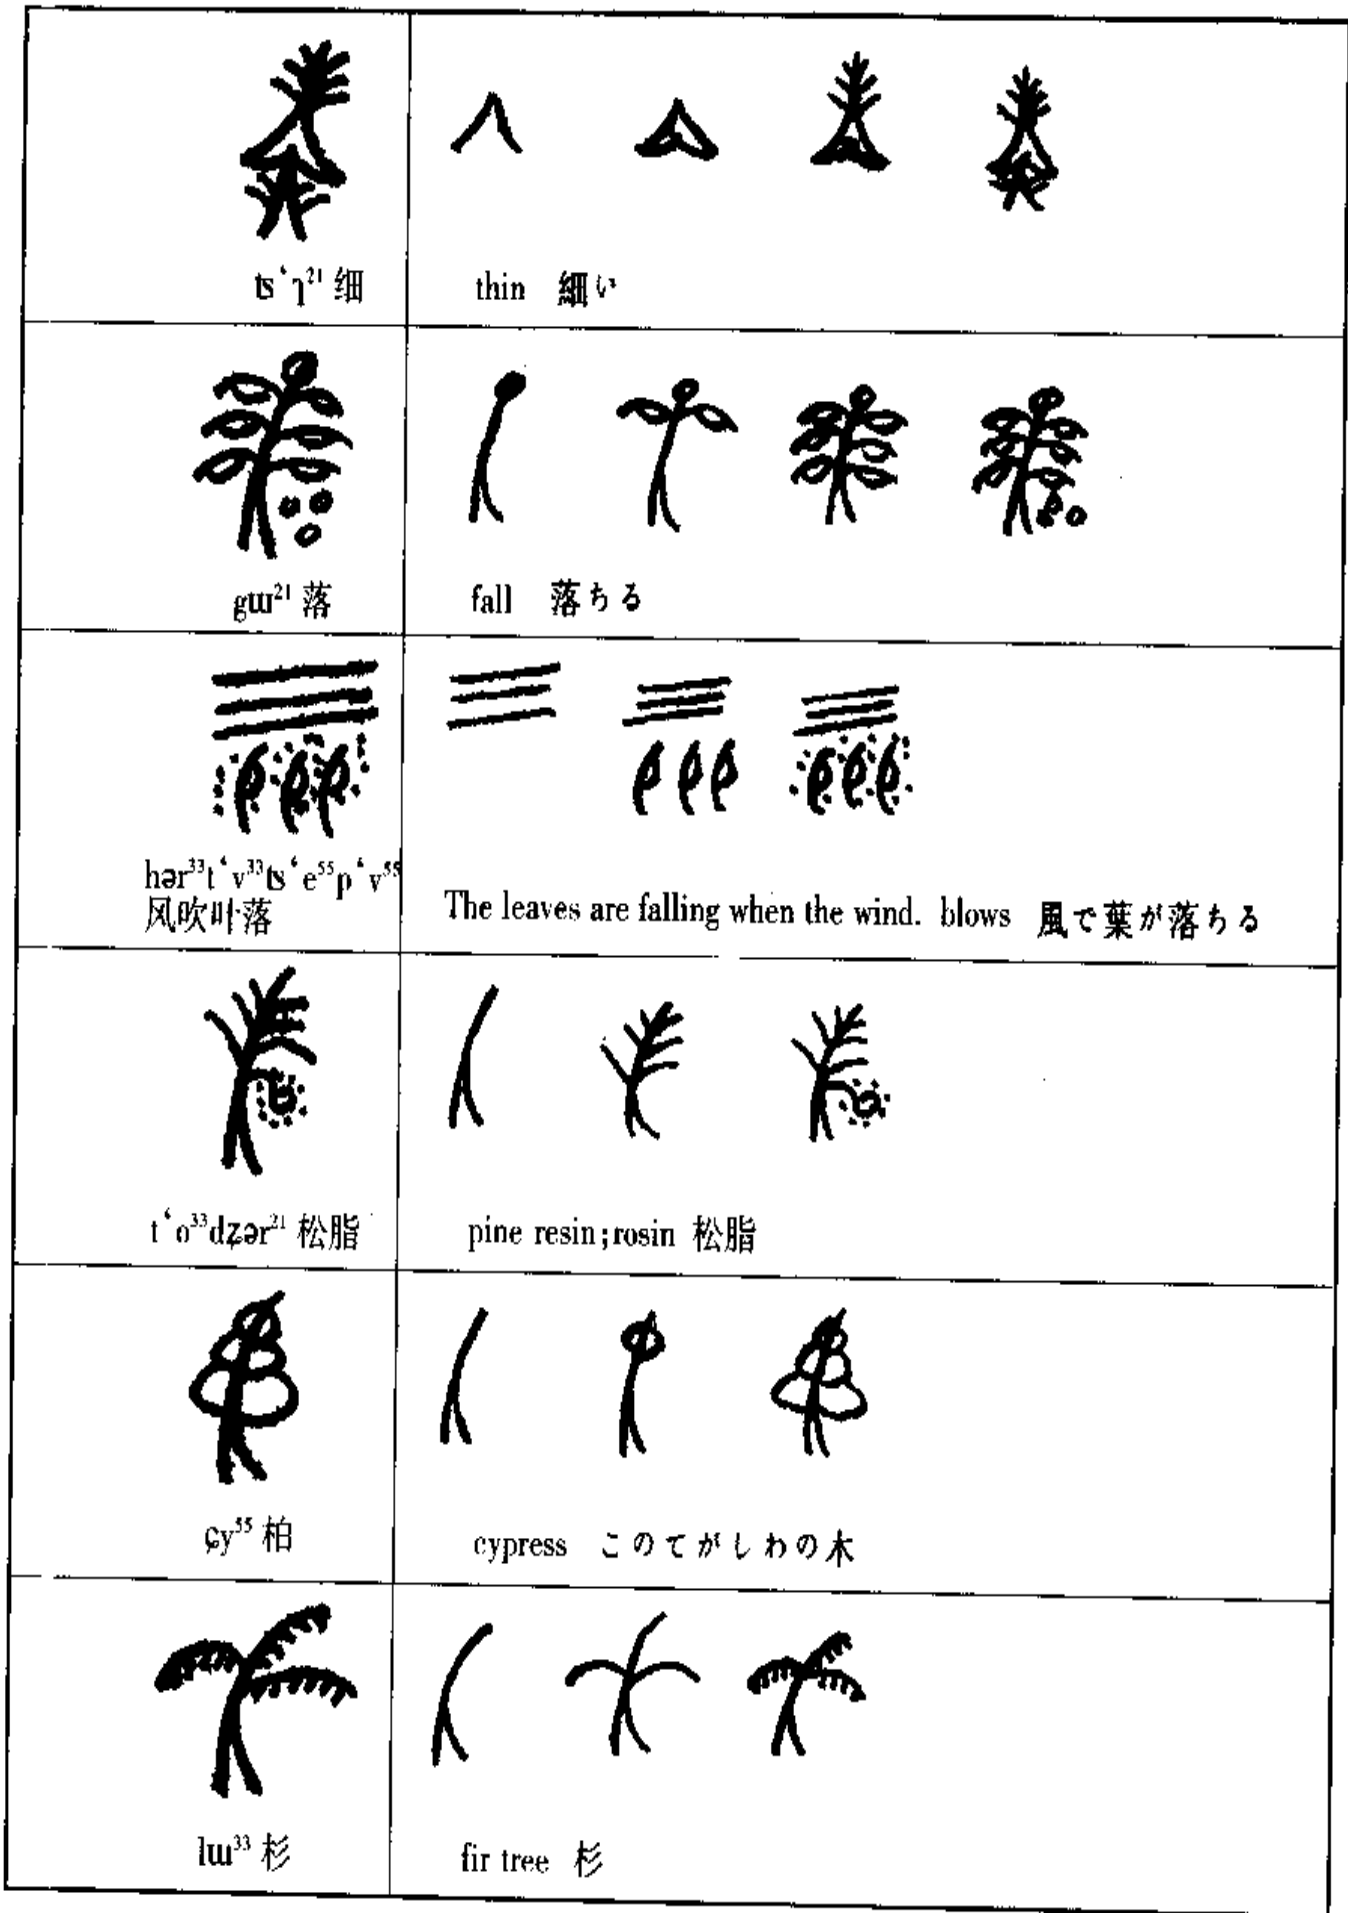 ts‘ɿ²¹ 细
thin 細い
gɯ²¹ 落
fall 落ちる
hər³³t‘v³³ts‘e⁵⁵p‘v⁵⁵
风吹叶落
The leaves are falling when the wind. blows 風で葉が落ちる
t‘o³³dʐər²¹ 松脂
pine resin;rosin 松脂
ɕy⁵⁵ 柏
cypress このてがしわの木
lɯ³³ 杉
fir tree 杉